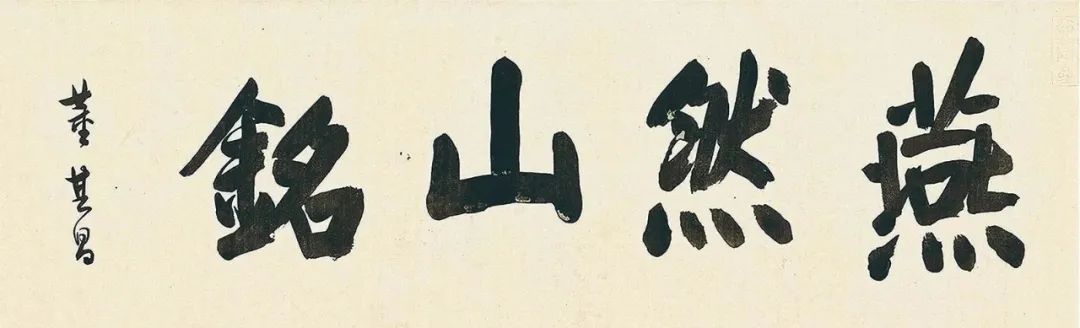 燕然山銘
董其昌